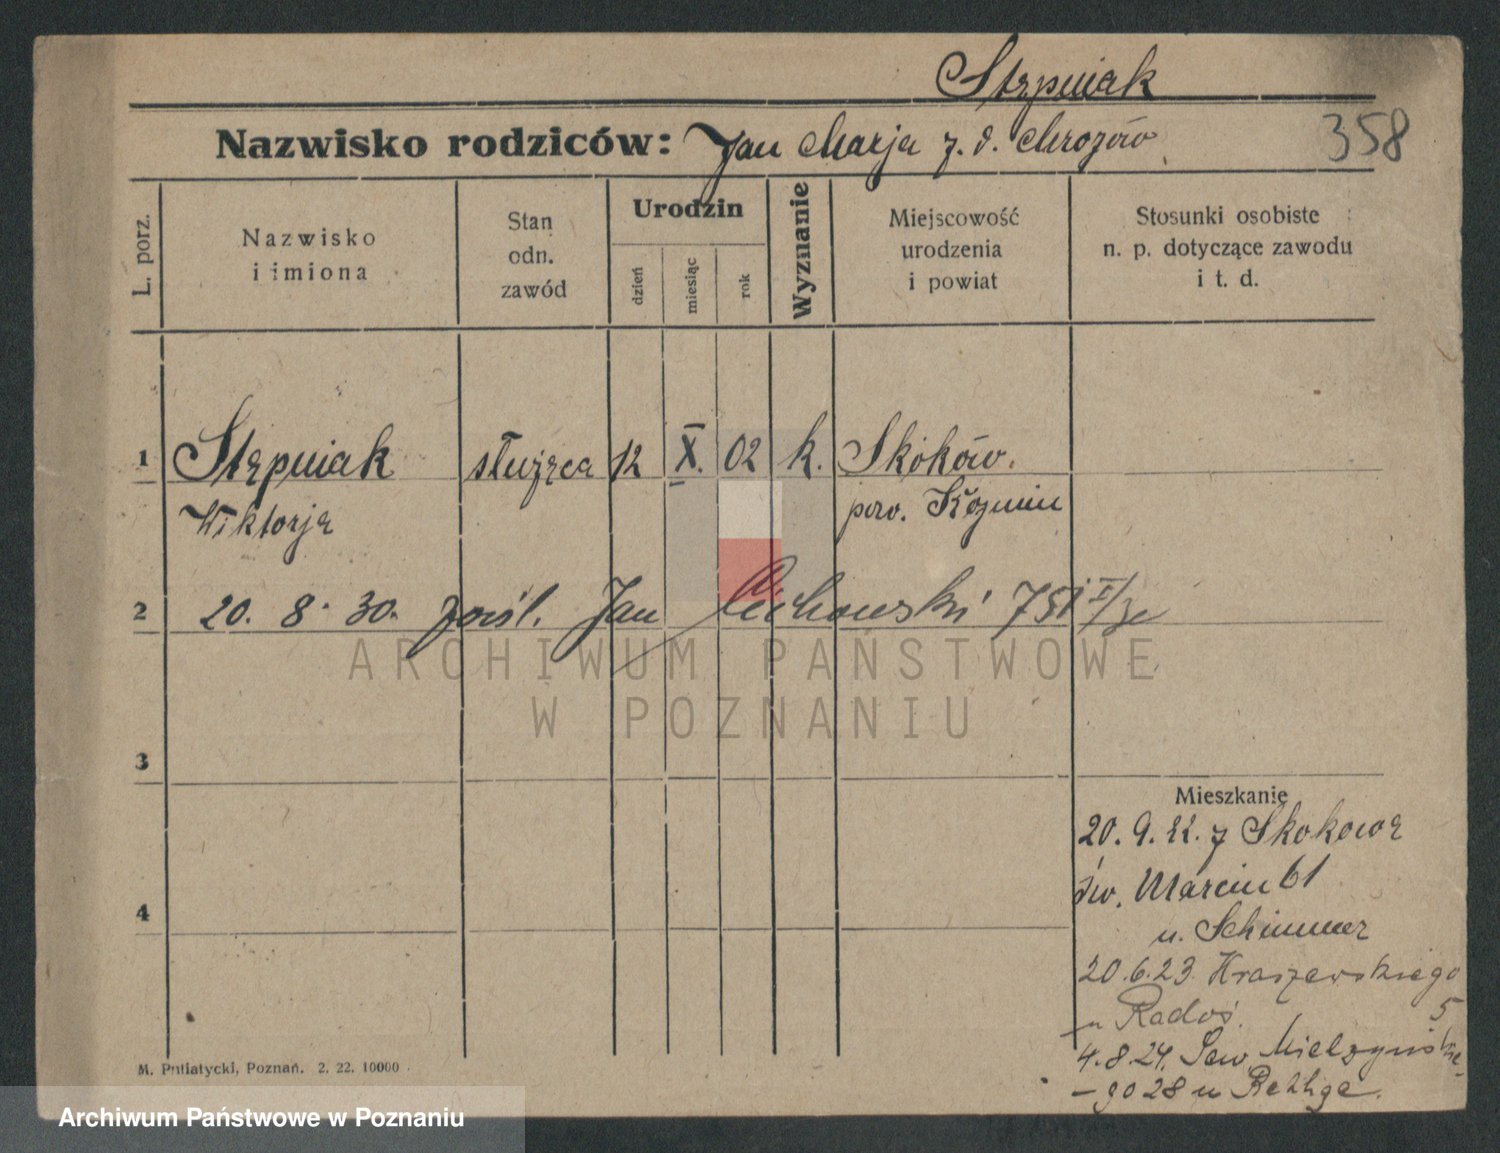 Stępniak
Nazwisko rodziców: Jan Marja z. d. Mrozów
358
L. porz.
Nazwisko
i imiona
Stan
odn.
zawód
Urodzin
dzień
miesiąc
rok
Wyznanie
Miejscowość
urodzenia
i powiat
Stosunki osobiste
n. p. dotyczące zawodu
i t. d.
1 Stępniak służąca 12 X. 02 k. Skoków.
Wiktorja pow. Koźmin
2 20. 8. 30. pośl. Jan Cichowski 751
ARCHIWUM PAŃSTWOWE
W POZNANIU
3
Mieszkanie
20. 9. 22. z Skokowa
św. Marcin 61
4
u. Schimmer
20.6.23. Kraszewskiego
5
u Radoś.
4.8.24. Sew. Mielżyńskie-
-go 28 u
M. Putiatycki, Poznań. 2. 22. 10000
Archiwum Państwowe w Poznaniu